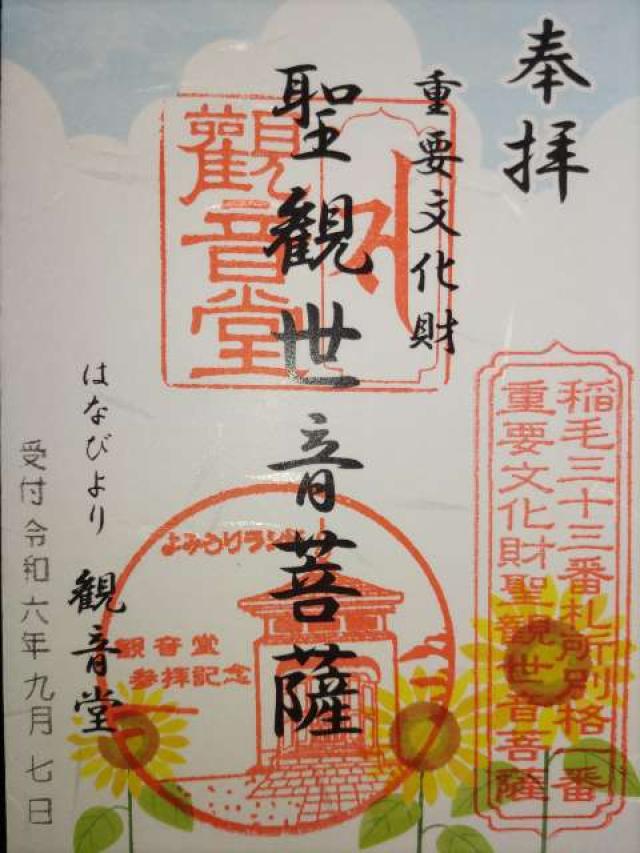 奉拝
重要文化財
聖観世音菩薩
はなびより
観音堂
受付令和六年九月七日
觀音堂
稲毛三十三番札所別格一番
重要文化財聖観世音菩薩
よみうりランド
観音堂
参拝記念